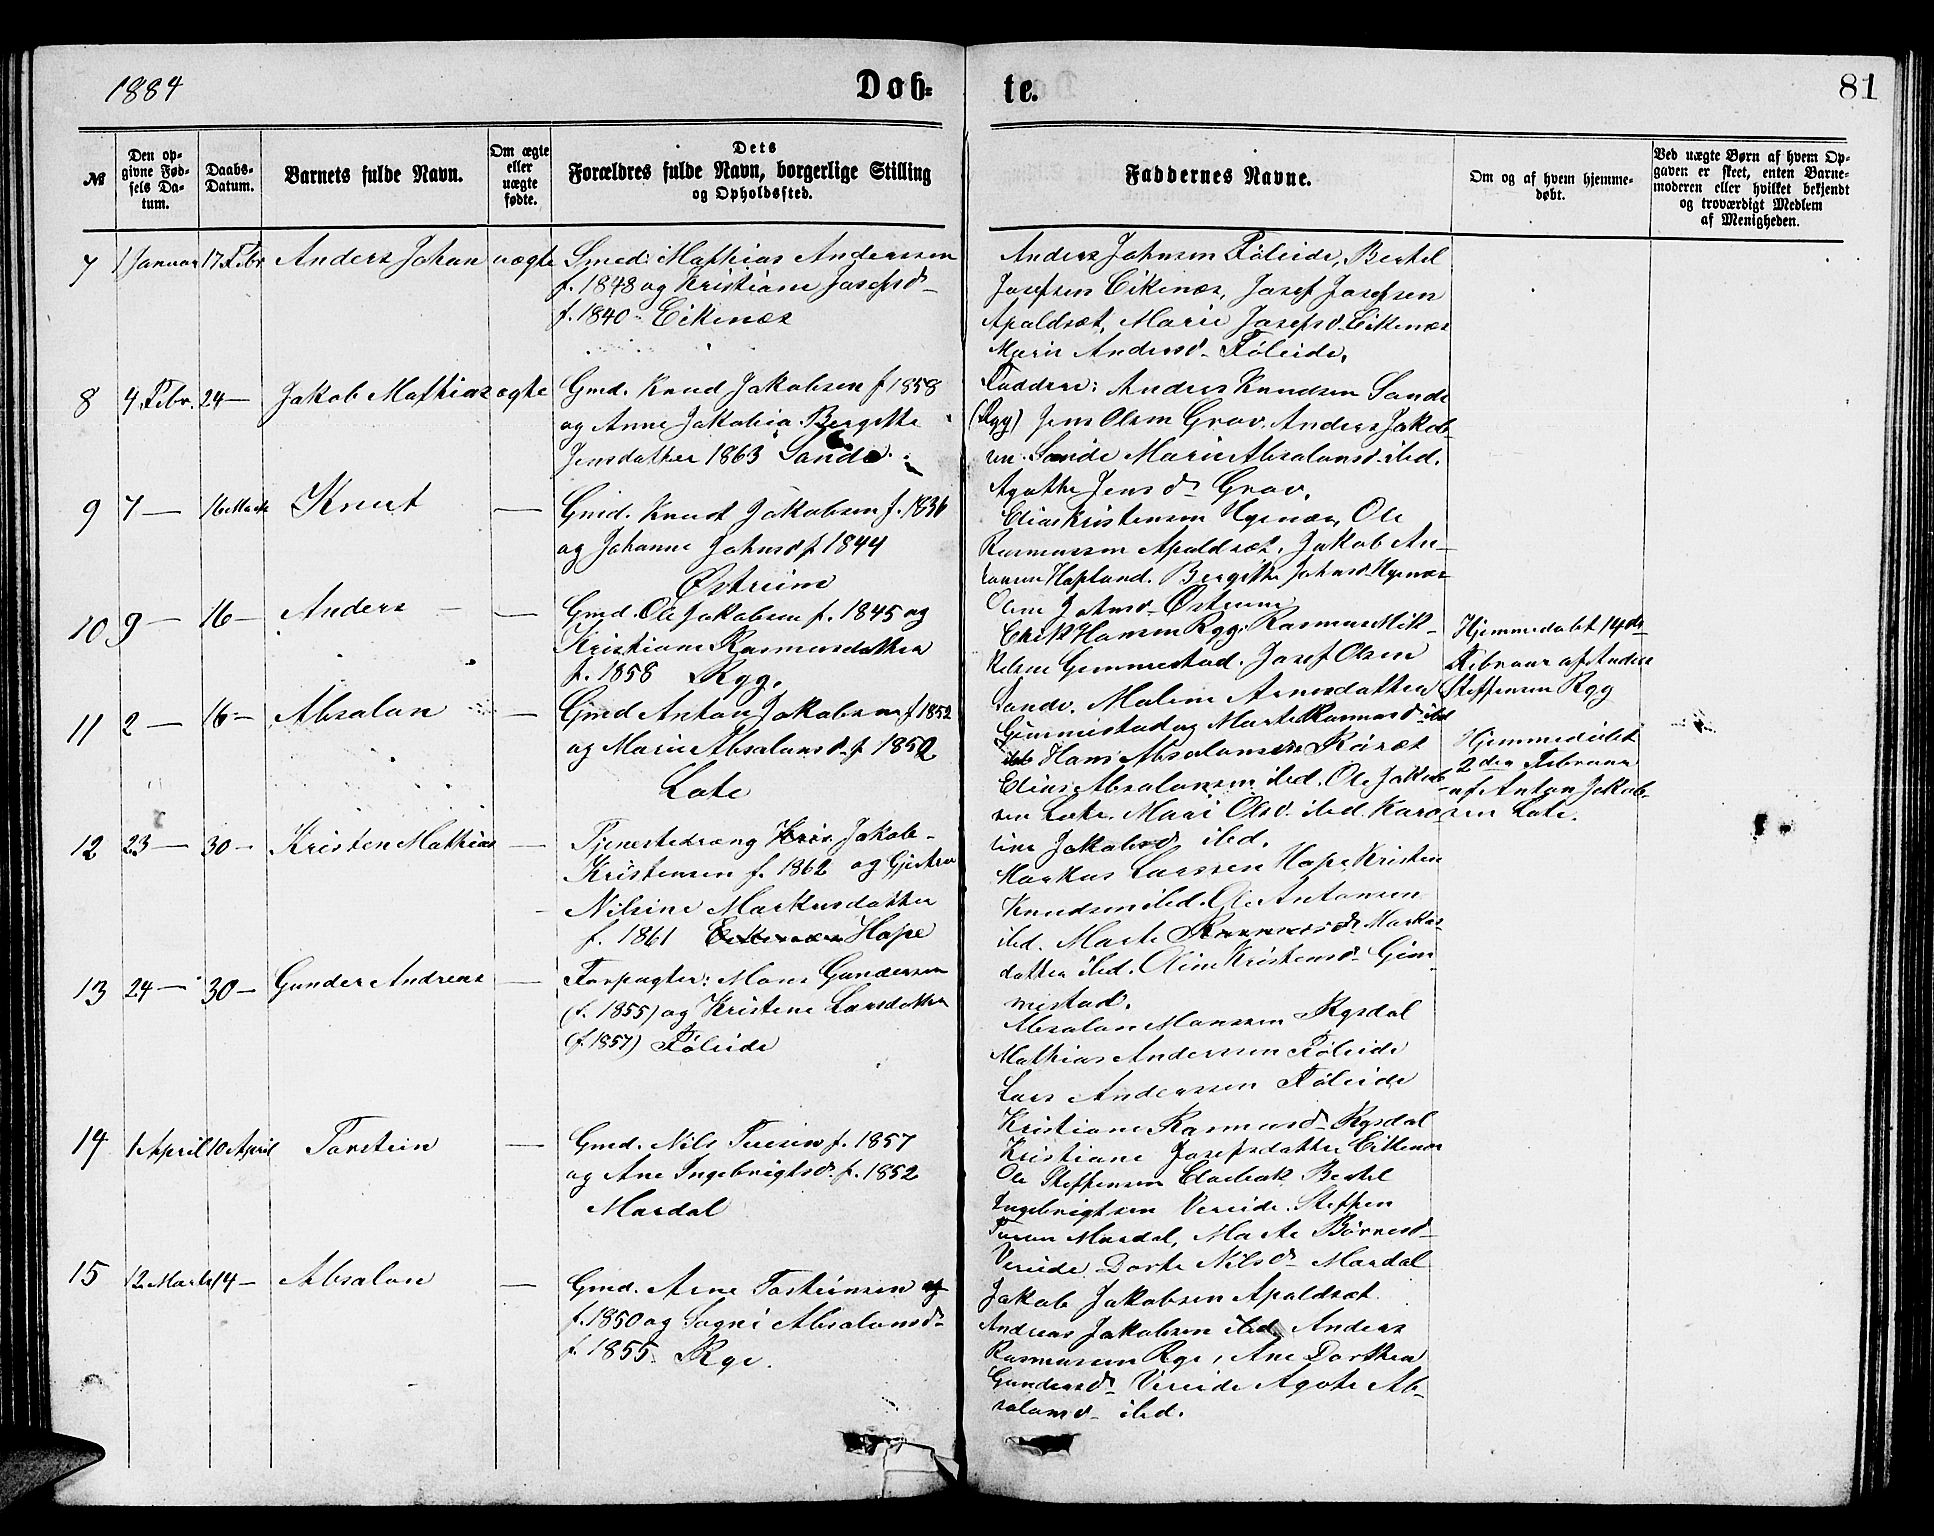 1884 Døb= te. 81
№
Den op-
givne Fød-
sels Da-
tum.
Daabs-
Datum.
Barnets fulde Navn.
Om ægte
eller
uægte
fødte.
Dets
Forældres fulde Navn, borgerlige Stilling
og Opholdssted.
Faddernes Navne.
Om og af hvem hjemme-
døbt.
Ved uægte Børn af hvem Op-
gaven er skeet, enten Barne-
moderen eller hvilket bekjendt
og troværdigt Medlem
af Menigheden.
7 1 Januar 17 Febr Anders Johan uægte Smed: Mathias Anderssen
f. 1848 og Kristiane Josefsd-
f. 1840 Eikenæs
Anders Johnsen Föleide, Bertel
Josefsen Eikenæs, Josef Josefsen
Apaldsæt, Marie Josefsd. Eikenæs
Marie Andersd- Föleide.
8 4 Febr. 24 — Jakob Mathias ægte Gmd. Knud Jakobsen f 1858
og Anne Jakobia Bergithe
Jensdatter 1863 Sande.
Faddere: Anders Knudsen Sande
(Ryg) Jens Olsen Grov, Anders Jakob-
sen Sande Marie Absalonsd. ibid.
Agathe Jensd- Grov.
9 7 — 16 Marts Knut — Gmd. Knud Jakobsen f. 1836
og Johanne Johnsd f 1844
Østreim
Elias Kristensen Hyenæs, Ole
Rasmussen Apaldsæt, Jakob An-
tonsen Hopland. Bergithe Johnsd Hyenæs
Oline Johnsd- Østreim
10 9 — 16 — Anders — Gmd. Ole Jakobsen f. 1845 og
Kristiane Rasmusdatter
f. 1858 Ryg.
Erik Hansen Ryg. Rasmus Mik-
kelsen Gimmestad. Josef Olsen
Sande. Malene Arnesdatter
Gimmestad og Marte Rasmusd ibid
Hjemmedøbt 14de
Februar af Anders
Steffensen Ryg
11 2 — 16 — Absalon — Gmd Anton Jakobsen f 1852
og Marie Absalonsd. f 1850
Lote
Hans Absalonsen Röræt
Elias Absalonsen ibid. Ole Jakob-
sen Lote. Mari Olsd. ibid. Karo-
line Jakobsd ibid.
Hjemmedöbt
2den Februar
af Anton Jakob-
sen Lote.
12 23 — 30 — Kristen Mathias — Tjenestedræng Kris Jakob
Kristensen f. 1862 og Gjenta
Nilsine Markusdatter
f. 1861 Eikenæs Hope
Markus Larssen Hope Kristen
Knudsen ibid. Ole Antonsen
ibid. Marte Rasmusd Markus-
datter ibid. Oline Kristensd- Gim-
mestad.
13 24 — 30 — Gunder Andreas — Forpagter: Mons Gundersen
(f. 1855) og Kristine Larsdatter
(f. 1857) Föleide
Absalon Monssen Rysdal
Mathias Anderssen Föleide
Lars Anderssen Föleide
Kristiane Rasmusd- Rysdal
Kristiane Josefsdatter Eikenæs
14 1 April 10 April Torstein — Gmd. Nils Turesen f. 1857
og Ane Ingebrigtsd. f. 1852
Mardal
Ole Steffensen Bertel
Ingebrigtsen Vereide. Steffen
Turesen Mardal, Marte
Vereide Dorte Nilsd- Mardal
15 12 Marts 14 — Absalon — Gmd. Arne Torsteinsen og
f. 1850 og Sogni Absalonsd-
f. 1855 Ryg.
Jakob Jakobsen Apaldsæt.
Andreas Jakobsen ibid, Anders
Rasmussen Ryg, Ane Dorthea
Gundersd- Vereide Agote Ab-
salonsd- ibid.